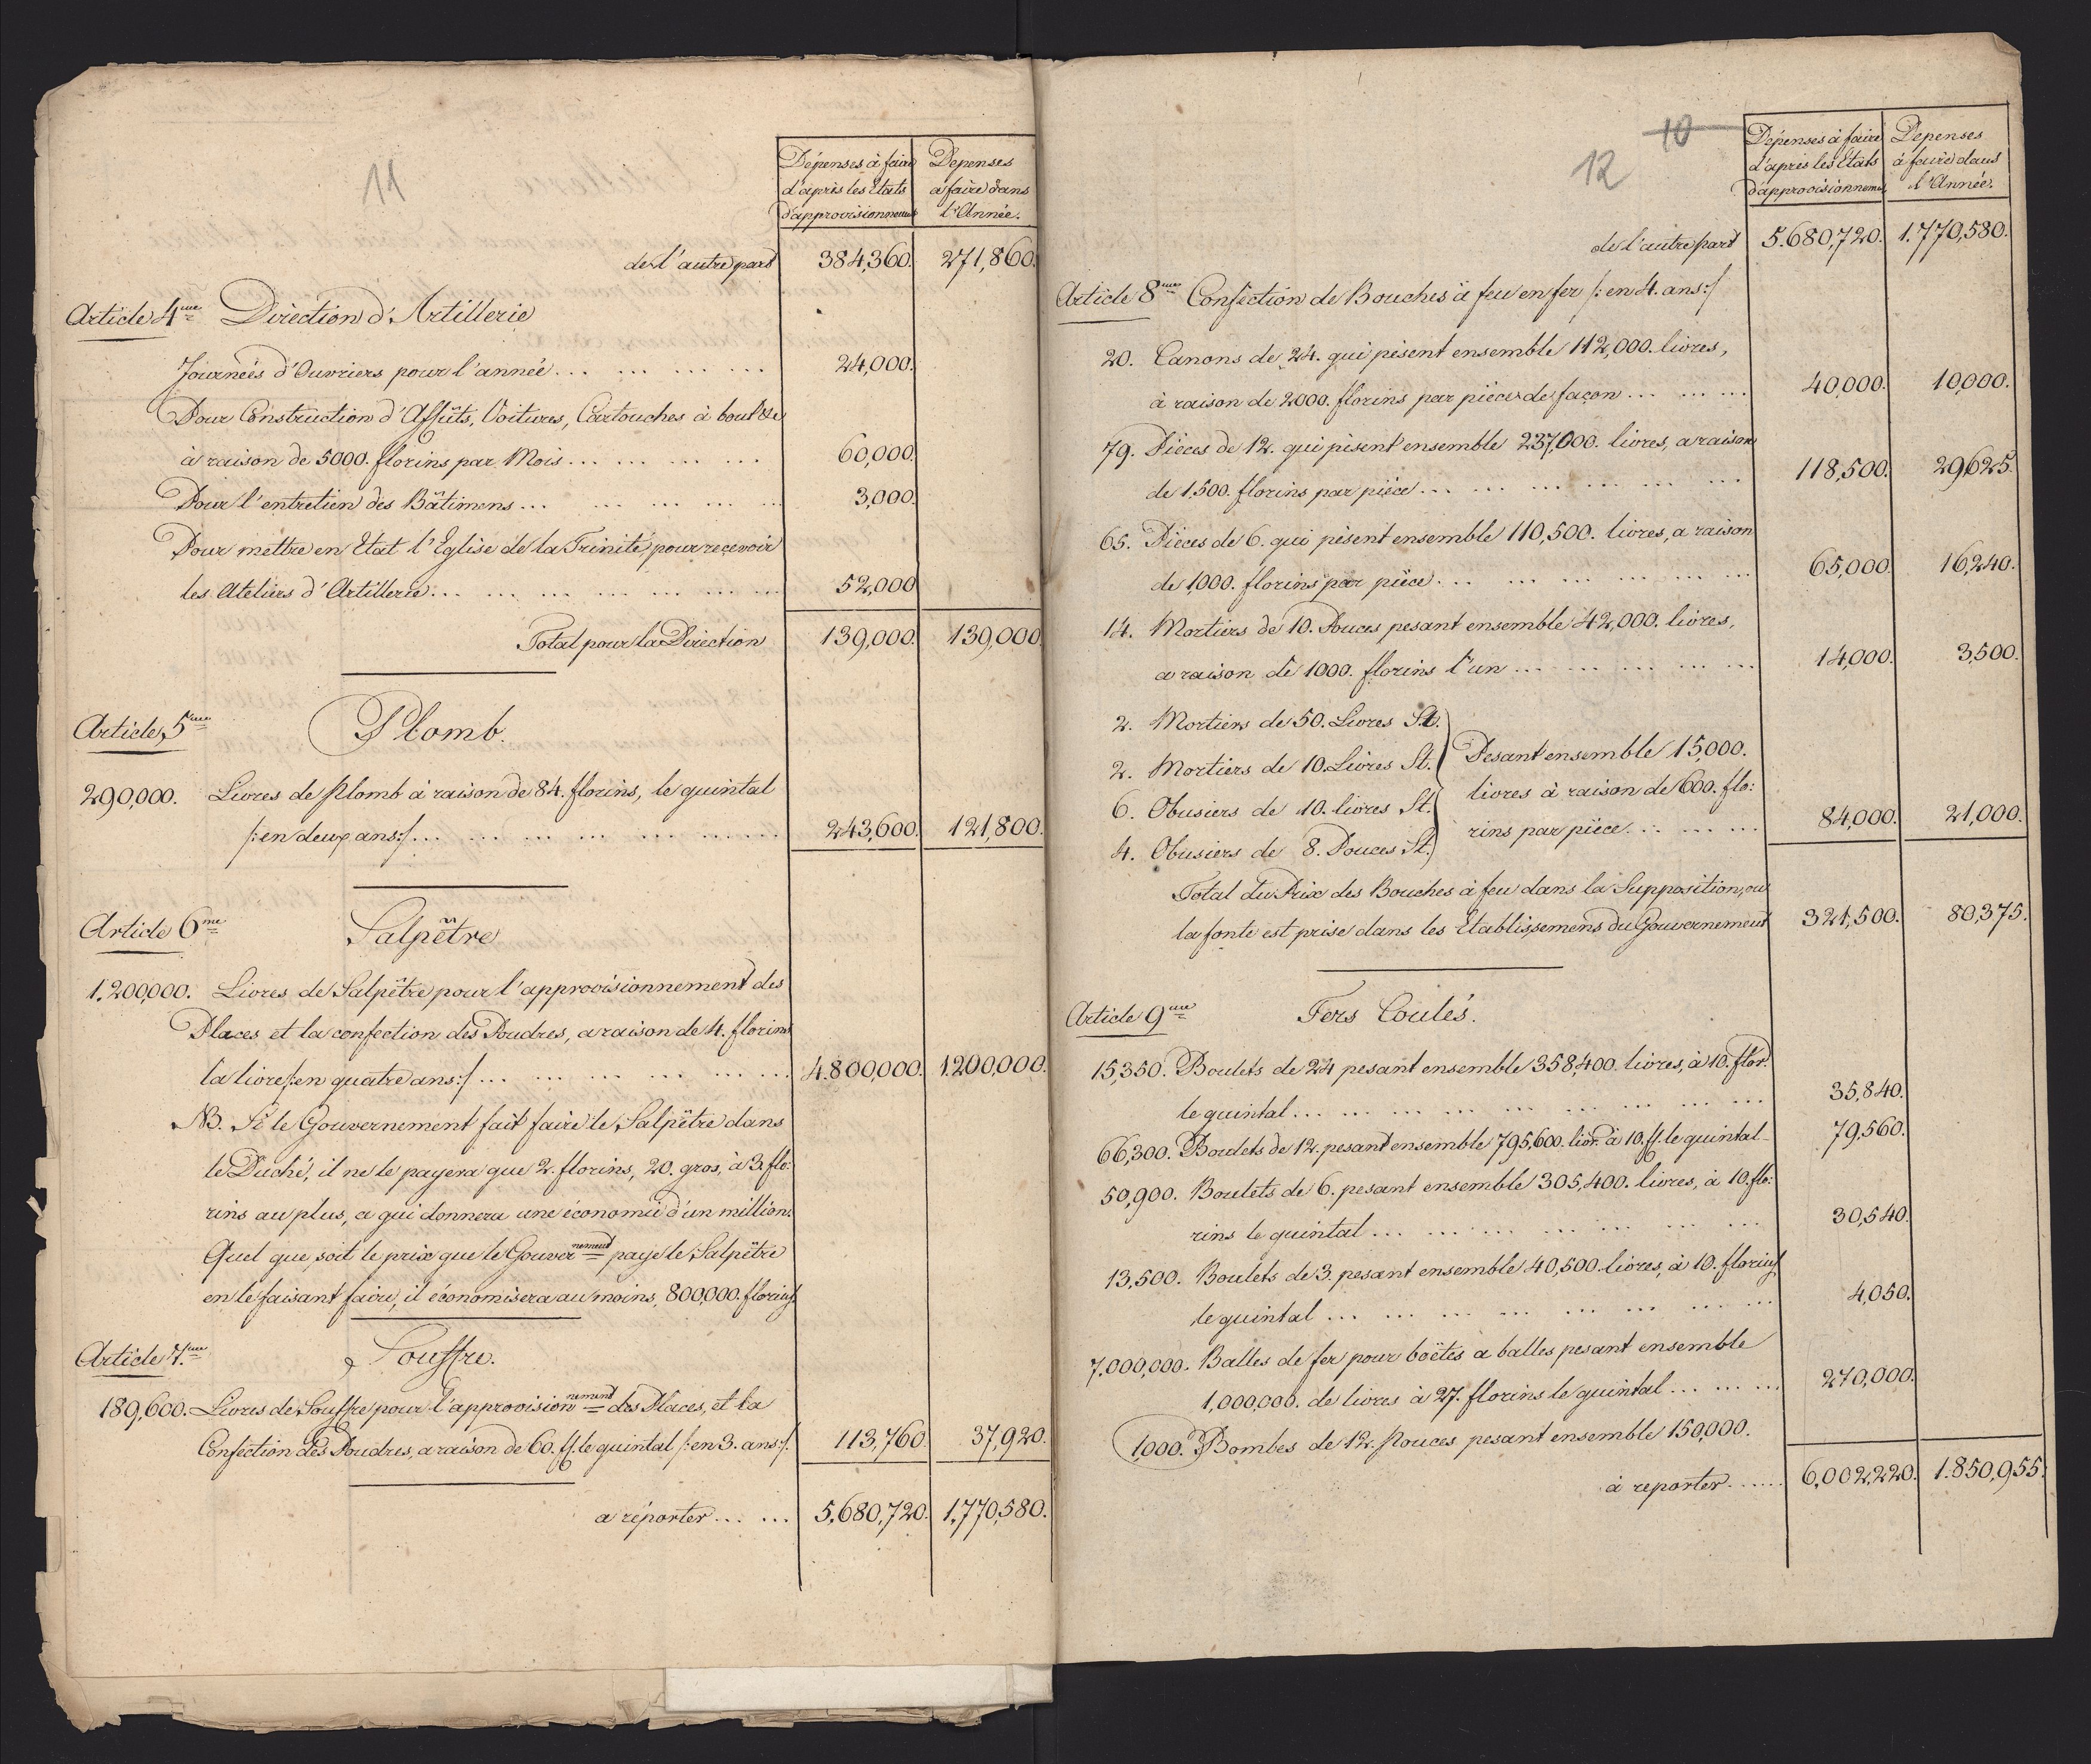 11
Dépenses à faire
d'après les Etats
d'approvisionnement
Depenses
à faire dans
l'Année.
de l'autre part 384,360. 271,860.
Article 4me Direction d'Artillerie
Journées d'Ouvriers pour l'année... ... ... ... ... 24,000.
Pour Construction d'Affûts, Voitures, Cartouches à boulets
à raison de 5000. florins par Mois... ... ... ... ... 60,000.
Pour l'entretien des Bâtimens... ... ... ... ... 3,000.
Pour mettre en Etat l'Eglise de la Trinité pour recevoir
les Ateliers d'Artillerie... ... ... ... ... ... ... 52,000
Total pour la Direction 139,000. 139,000.
Article 5me Plomb.
290,000. Livres de Plomb à raison de 84. florins, le quintal
/:en deux ans:/... ... ... ... ... ... ... 243,600. 121,800.
Article 6me Salpêtre
1.200,000. Livres de Salpêtre pour l'approvisionnement des
Places et la confection des Poudres, a raison de 4. florins
la livre /:en quatre ans:/... ... ... ... ... ... 4.800,000. 1.200,000.
NB. Si le Gouvernement fait faire le Salpêtre dans
le Duché, il ne le payera que 2. florins, 20. gros, à 3. flo:
rins au plus, ce qui donnera une économie d'un million.
Quel que soit le prix que le Gouvernement paye le Salpêtre
en le faisant faire, il économisera au moins 800,000. florins.
Article 7.me Souffre.
189,600. Livres de Souffre pour l'approvisionnement des Places, et la
Confection des Poudres, a raison de 60. ff. le quintal /:en 3. ans:/. 113,760. 37,920.
a réporter... ... 5,680,720. 1,770,580.
10
12
Dépenses à faire
d'après les Etats
d'approvisionnemens
Depenses
à faire dans
l'Année.
de l'autre part 5.680,720. 1.770,580.
Article 8me Confection de Bouches à feu en fer /:en 4. ans:/
20. Canons de 24. qui pèsent ensemble 112,000. livres,
à raison de 2000. florins par pièce de façon... ... ... 40,000. 10,000.
79. Pièces de 12. qui pèsent ensemble 237,000. livres, a raison
de 1.500. florins par pièce... ... ... ... ... ... ... 118,500. 29,625.
65. Pièces de 6. qui pèsent ensemble 110,500. livres, a raison
de 1,000. florins par pièce... ... ... ... ... ... ... 65,000. 16,240.
14. Mortiers de 10. Pouces pesant ensemble 42,000. livres,
a raison de 1000. florins l'un... ... ... ... ... 14,000. 3,500.
2. Mortiers de 50. Livres St.
2. Mortiers de 10. Livres St.
6. Obusiers de 10. livres St.
4. Obusiers de 8. Pouces St.
Pesant ensemble 15,000.
livres à raison de 600. flo:
rins par pièce... ... ... 84,000. 21,000.
Total du Prix des Bouches à feu dans la Supposition, ou
la fonte est prise dans les Etablissemens du Gouvernement 321,500. 80,375.
Article 9me Fers Coulés.
15,350. Boulets de 24 pesant ensemble 358,400. livres, à 10. flor.
le quintal... ... ... ... ... ... ... ... ... 35,840.
66,300. Boulets de 12. pesant ensemble 795,600. livr. à 10. ff. le quintal 79,560.
50,900. Boulets de 6. pesant ensemble 305,400. livres, à 10. flo:
rins le quintal... ... ... ... ... ... ... 30,540.
13,500. Boulets de 3. pesant ensemble 40,500. livres, à 10. florins
le quintal... ... ... ... ... ... ... ... 4,050.
7.000,000. Balles de fer pour boëtes a balles pesant ensemble
1,000,000. de livres à 27. florins le quintal... ... ... 270,000.
1,000. Bombes de 12. Pouces pesant ensemble 150,000.
à reporter...... 6,002,220. 1.850,955.